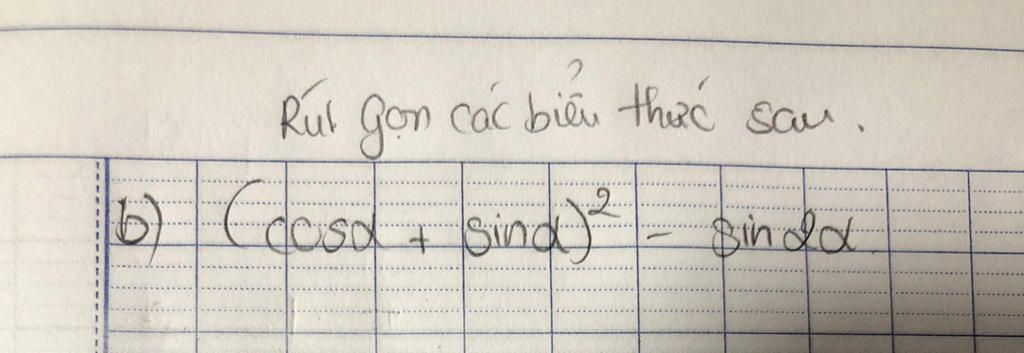 Rút gọn các biểu thức sau.
b) (cosα + sinα)² - sin2α